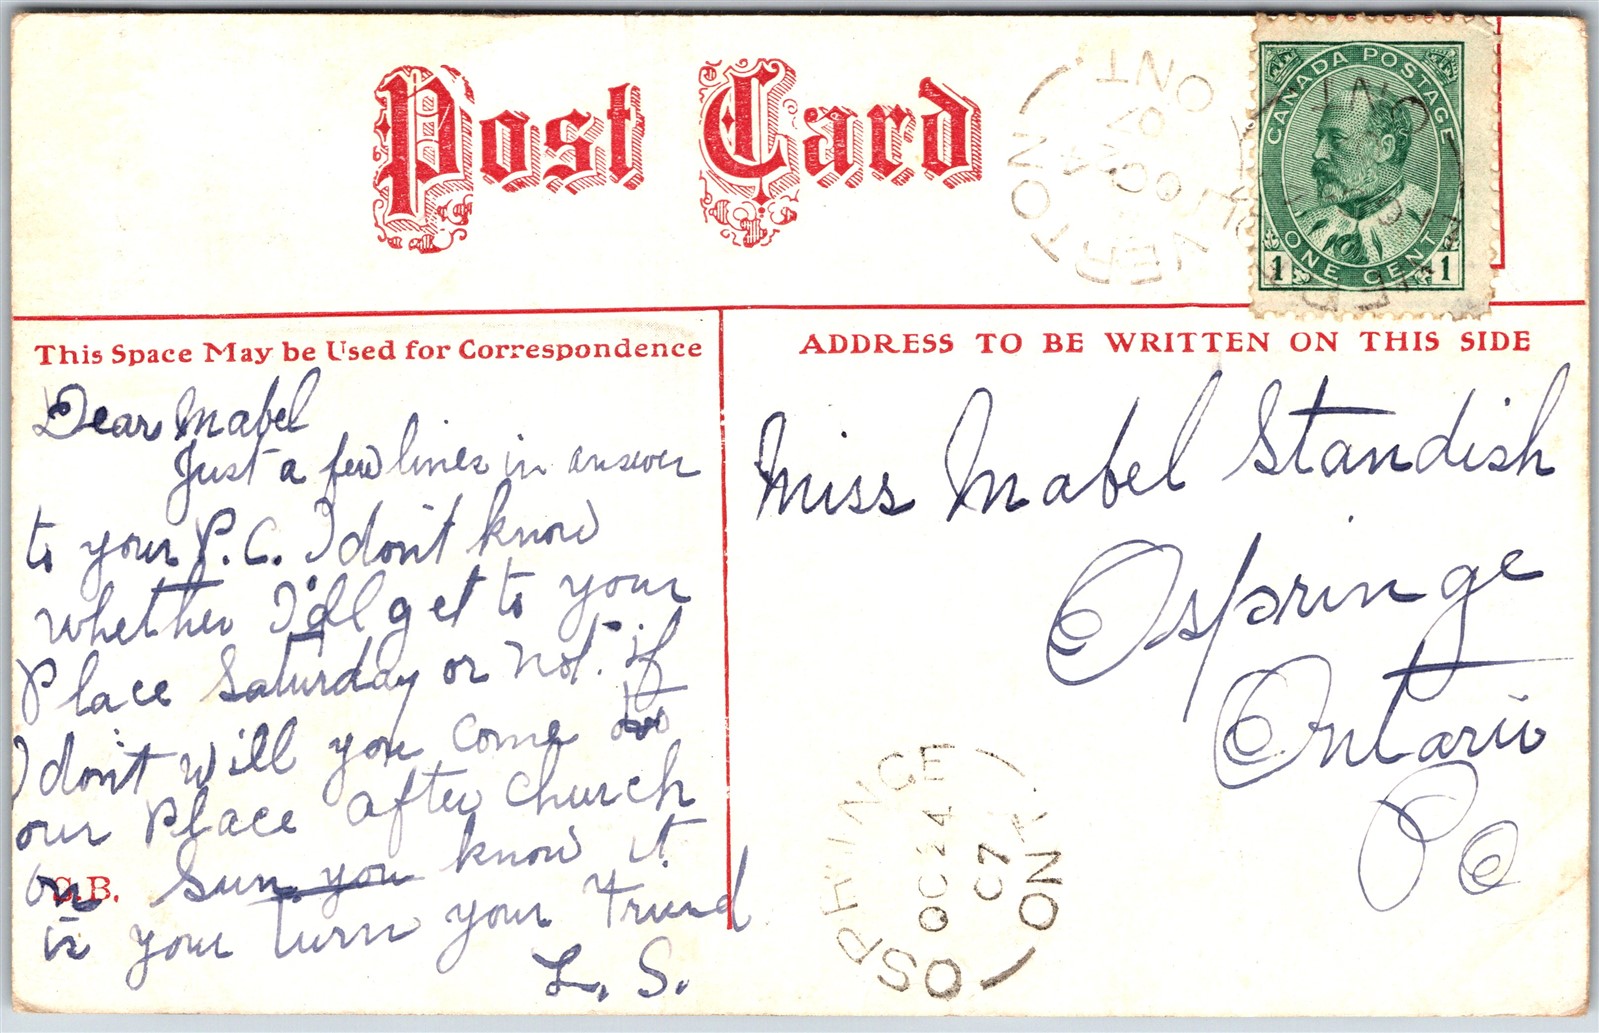 Post Card
CANADA POSTAGE
ONE CENT
1 1
ONT.
OC 24
07
This Space May be Used for Correspondence
ADDRESS TO BE WRITTEN ON THIS SIDE
Dear Mabel
Just a few lines in answer
to your P.C. I don't know
whether I'll get to your
Place Saturday or not. if
I don't will you come to
our Place after church
on Sun you know it
is your turn your Friend
L. S.
S.B.
Miss Mabel Standish
Ospringe
Ontario
PO
OSPRINGE
OC 24
07
ONT.